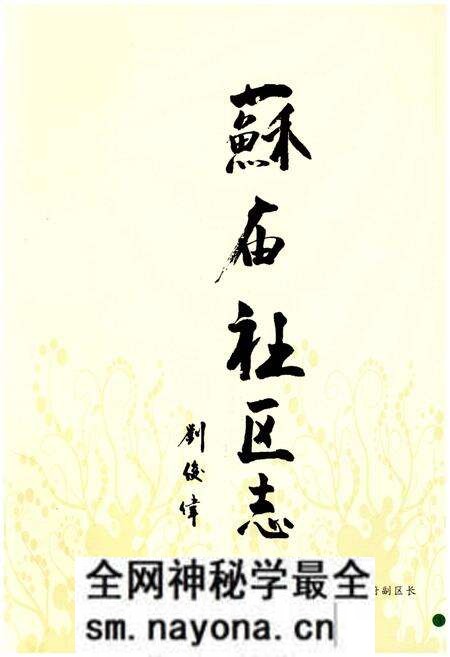 蘇庙社区志
劉俊偉
副区长
全网神秘学最全
sm.nayona.cn